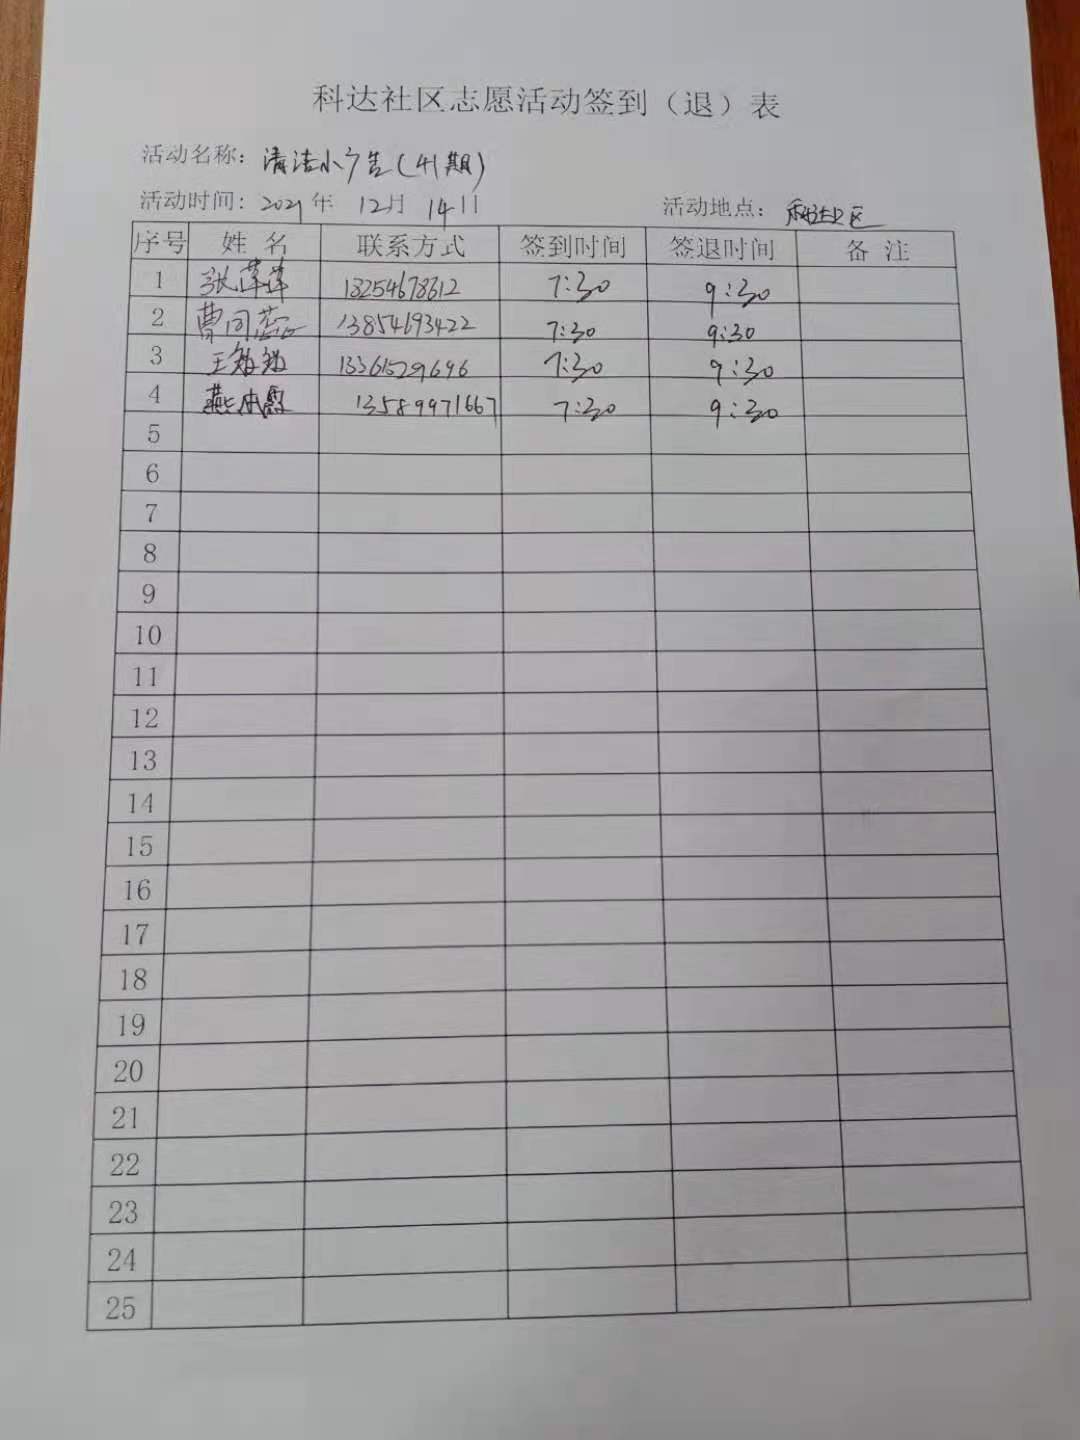 科达社区志愿活动签到（退）表
活动名称：清洁小广告（41期）
活动时间：2021年 12月 14日 活动地点：科达社区
序号 姓名 联系方式 签到时间 签退时间 备注
1 张萍萍 13254678612 7:30 9:30
2 曹同蕊 13854693422 7:30 9:30
3 王敏敏 13361529696 7:30 9:30
4 燕 13589971667 7:30 9:30
5
6
7
8
9
10
11
12
13
14
15
16
17
18
19
20
21
22
23
24
25